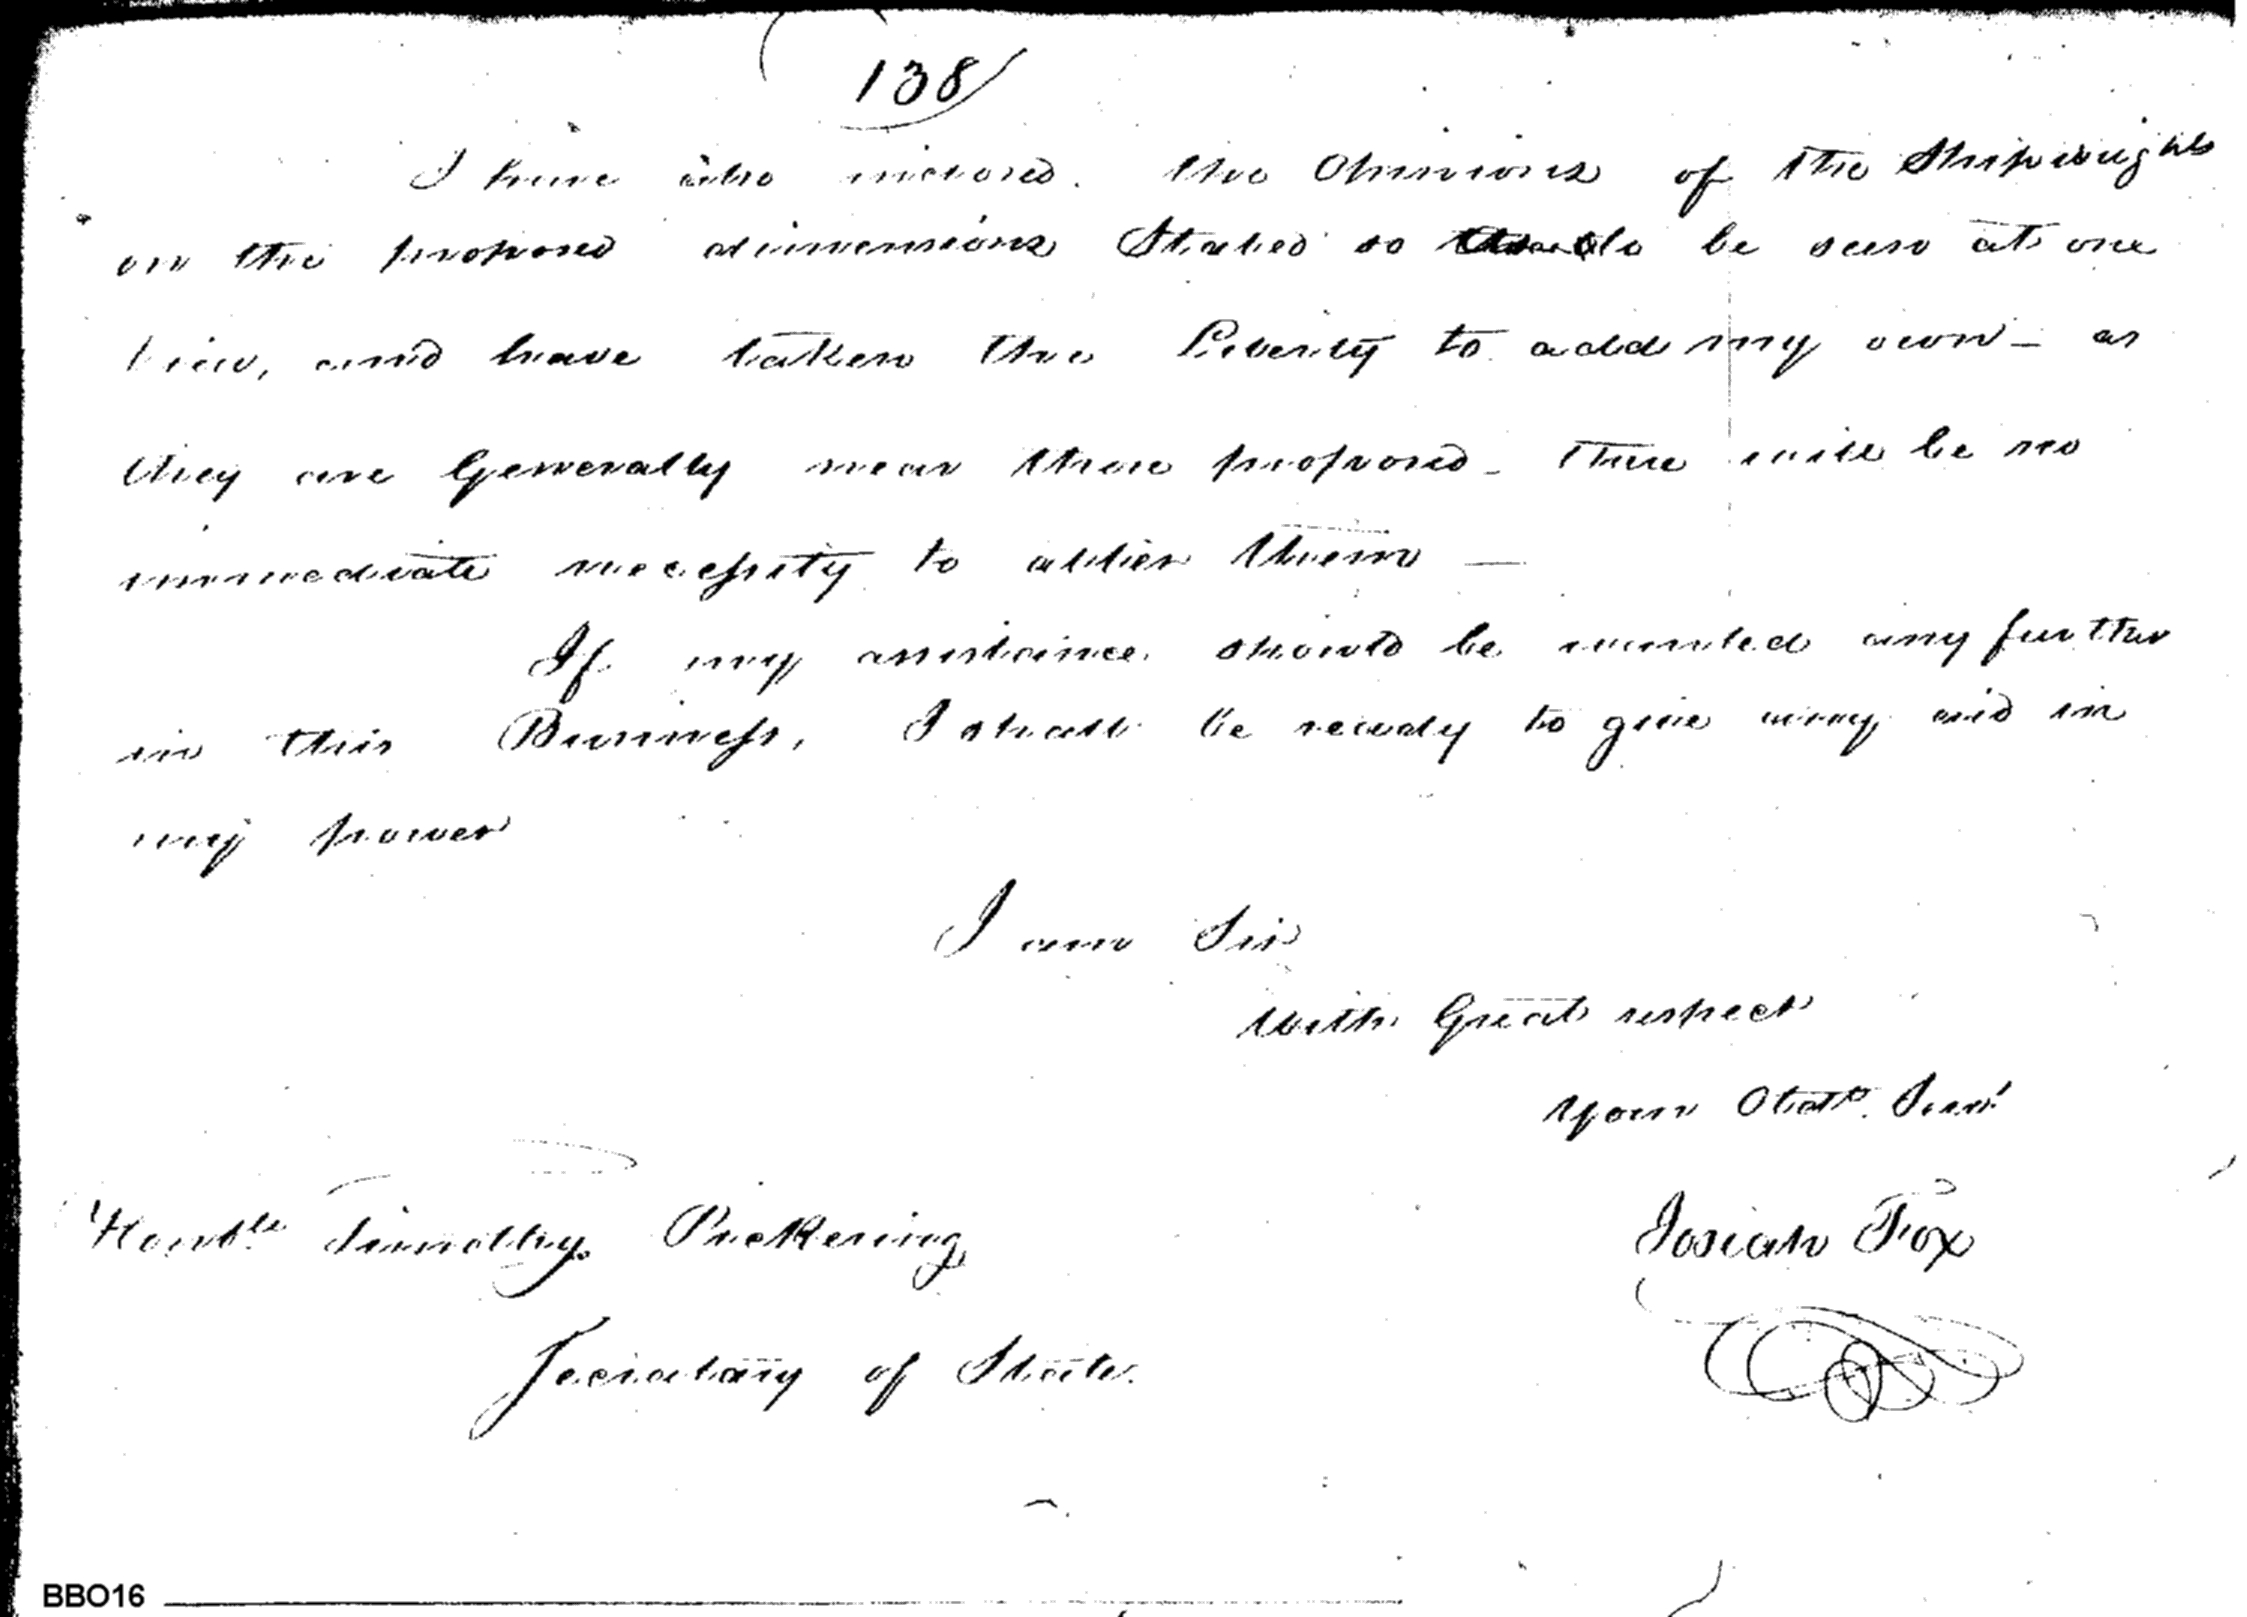 138
I have also inclosed the Opinions of the Shipwrights
on the proposed dimensions Stated so to be seen at one
View, and have taken the Liberty to add my own – as
they are Generally near those proposed – there will be no
immediate necessity to alter them —
If my assistance should be wanted any further
in this Business, I shall be ready to give any aid in
my power
I am Sir
With Great respect
Your Obdt. Servt
Josiah Fox
Honble Timothy Pickering
Secretary of State.
BBO16